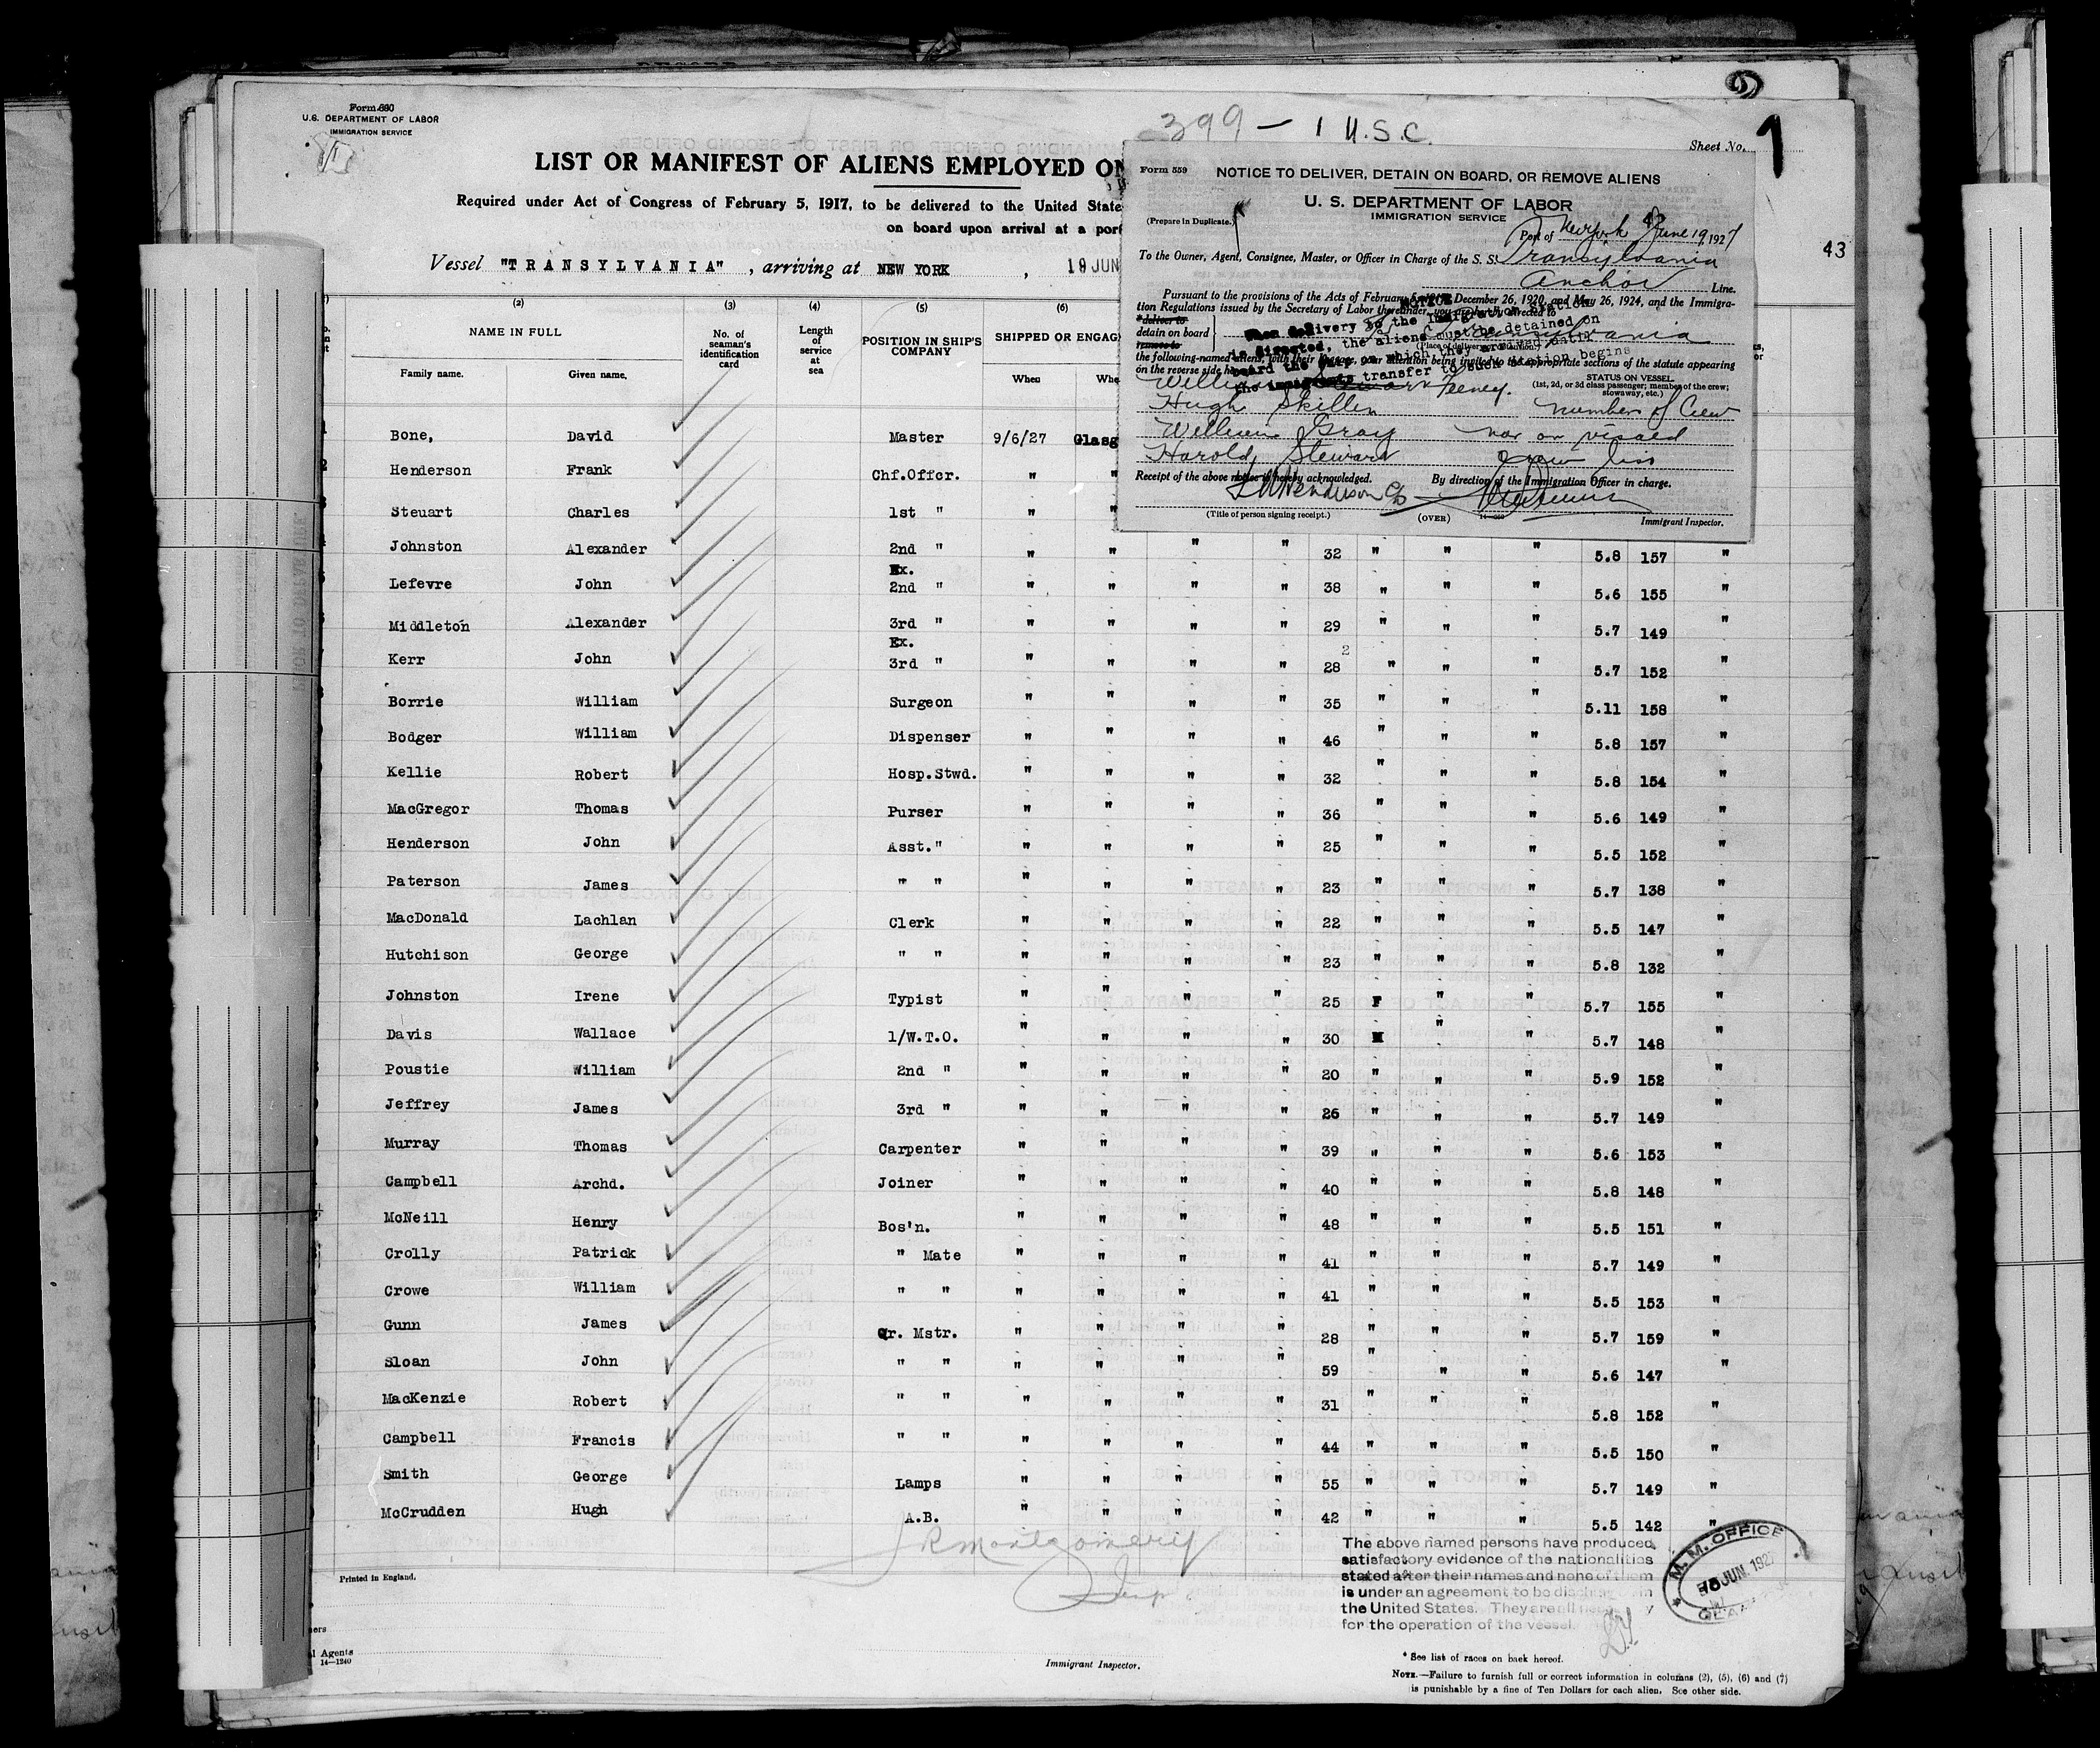 Form 680
U.S. DEPARTMENT OF LABOR
IMMIGRATION SERVICE
399 — 1 U.S.C.
Sheet No. 1
LIST OR MANIFEST OF ALIENS EMPLOYED ON
Required under Act of Congress of February 5, 1917, to be delivered to the United State
on board upon arrival at a por
Vessel "TRANSYLVANIA", arriving at NEW YORK, 19 JUN
43
Form 559
NOTICE TO DELIVER, DETAIN ON BOARD, OR REMOVE ALIENS
U. S. DEPARTMENT OF LABOR
IMMIGRATION SERVICE
(Prepare in Duplicate.)
Port of New York June 19, 1927
To the Owner, Agent, Consignee, Master, or Officer in Charge of the S. S. Transylvania
Anchor Line.
Pursuant to the provisions of the Acts of February 5, 1917, December 26, 1920, and May 26, 1924, and the Immigra-
tion Regulations issued by the Secretary of Labor thereunder, you are hereby directed to
*deliver to
detain on board
remove to
(Place of delivery or detention.)
the following-named aliens, with their baggage, your attention being invited to the appropriate sections of the statute appearing
on the reverse side hereof
NOTICE
When delivery to the Immigration Station
is directed, the aliens must be detained on
board the ship on which they arrived until
the immigrants transfer to such station begins
STATUS ON VESSEL
(1st, 2d, or 3d class passenger; member of the crew;
stowaway, etc.)
William Feeney.
Hugh Skillen
William Gray
Harold Stewart
member of Crew
not on visaed
crew list
Receipt of the above notice is hereby acknowledged.
By direction of the Immigration Officer in charge.
(Title of person signing receipt.)
(OVER)
Immigrant Inspector.
(2) (3) (4) (5) (6)
NAME IN FULL
Family name. Given name.
No. of seaman's identification card
Length of service at sea
POSITION IN SHIP'S COMPANY
SHIPPED OR ENGAG
When Whe
Bone, David Master 9/6/27 Glasg
Henderson Frank Chf.Offcr. " "
Steuart Charles 1st " " "
Johnston Alexander 2nd " " " " " 32 " " " 5.8 157 "
Lefevre John Ex. 2nd " " " " " 38 " " " 5.6 155 "
Middleton Alexander 3rd " " " " " 29 " " " 5.7 149 "
Kerr John Ex. 3rd " " " " " 28 2 " " " 5.7 152 "
Borrie William Surgeon " " " " 35 " " " 5.11 158 "
Bodger William Dispenser " " " " 46 " " " 5.8 157 "
Kellie Robert Hosp.Stwd. " " " " 32 " " " 5.8 154 "
MacGregor Thomas Purser " " " " 36 " " " 5.6 149 "
Henderson John Asst." " " " " 25 " " " 5.5 152 "
Paterson James " " " " " " 23 " " " 5.7 138 "
MacDonald Lachlan Clerk " " " " 22 " " " 5.5 147 "
Hutchison George " " " " " " 23 " " " 5.8 132 "
Johnston Irene Typist " " " " 25 F " " 5.7 155 "
Davis Wallace 1/W.T.O. " " " " 30 M " " 5.7 148 "
Poustie William 2nd " " " " " 20 " " " 5.9 152 "
Jeffrey James 3rd " " " " " 26 " " " 5.7 149 "
Murray Thomas Carpenter " " " " 39 " " " 5.6 153 "
Campbell Archd. Joiner " " " " 40 " " " 5.8 148 "
McNeill Henry Bos'n. " " " " 48 " " " 5.5 151 "
Crolly Patrick " Mate " " " " 41 " " " 5.7 149 "
Crowe William " " " " " " 41 " " " 5.5 153 "
Gunn James Qr. Mstr. " " " " 28 " " " 5.7 159 "
Sloan John " " " " " " 59 " " " 5.6 147 "
MacKenzie Robert " " " " " " 31 " " " 5.8 152 "
Campbell Francis " " " " " " 44 " " " 5.5 150 "
Smith George Lamps " " " " 55 " " " 5.7 149 "
McCrudden Hugh A.B. " " " " 42 " " " 5.5 142 "
JR Montgomery
Insp.
The above named persons have produced
satisfactory evidence of the nationalities
stated after their names and none of them
is under an agreement to be discharg m
the United States. They are all ne y
for the operation of the vessel.
M. M. OFFICE
JUN 1927
Printed in England.
ners
l Agents
14—1240
Immigrant Inspector.
* See list of races on back hereof.
NOTE.—Failure to furnish full or correct information in columns (2), (5), (6) and (7)
is punishable by a fine of Ten Dollars for each alien. See other side.